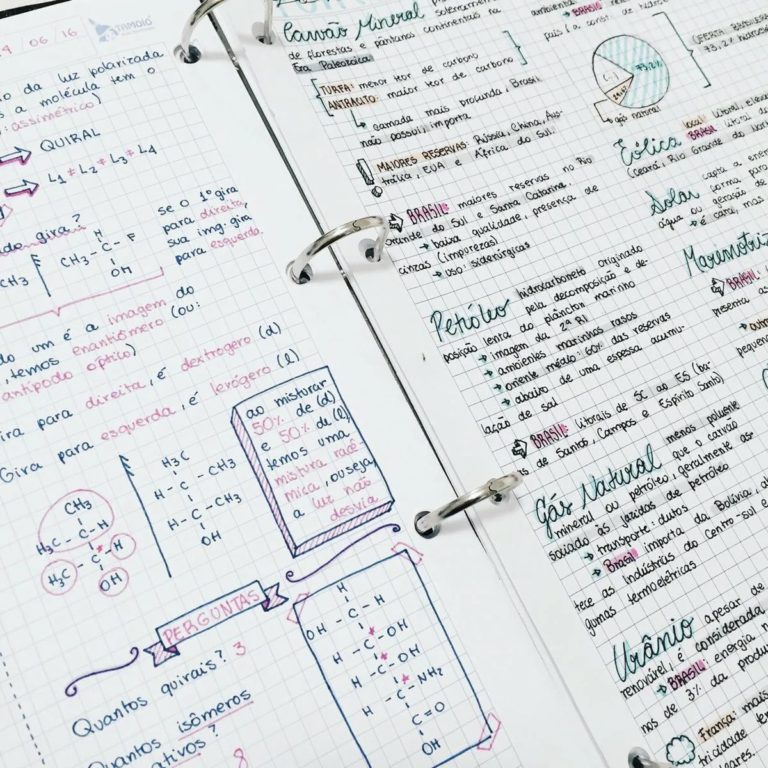 /06/16
da luz polarizada
a molécula tem o
assimétrico)
QUIRAL
L1 ≠ L2 ≠ L3 ≠ L4
gira?
se o 1º gira
para direita,
sua img. gira
para esquerda.
CH3
H
CH3-C-F
OH
um é a imagem do
, temos enantiômero (ou:
antípodo óptico)
Gira para direita, é dextrogero (d)
Gira para esquerda, é levógero (l)
ao misturar
50% de (d)
e 50% de (l),
temos uma
mistura racê-
mica, ou seja,
a luz não
desvia
CH3
H3C-C-H
H3C-C-H
OH
H3C
H-C-CH3
H-C-CH3
OH
PERGUNTAS
Quantos quirais? 3
Quantos isômeros
ativos?
8
H
OH-C-H
H-C-OH
H-C-OH
H-C-NH2
C=O
OH
Carvão Mineral
de florestas e pântanos continentais na
Era Paleozoica
TURFA: menor teor de carbono
ANTRÁCITO: maior teor de carbono
camada mais profunda, Brasil
não possui, importa
MAIORES RESERVAS: Rússia, China, Aus-
trália, EUA e África do Sul
BRASIL: maiores reservas no Rio
Grande do Sul e Santa Catarina.
baixa qualidade, presença de
cinzas (impurezas)
uso: siderúrgicas
Petróleo hidrocarboneto originado
pela decomposição e de-
posição lenta do plâncton marinho
imagem da 2ª RI
ambientes marinhos rasos
oriente médio: 60% das reservas
abaixo de uma espessa acumu-
lação de sal
BRASIL: litorais de SC ao ES (ba-
s de Santos, Campos e Espírito Santo)
Gás Natural menos poluente
que o carvão
mineral ou petróleo, geralmente as-
sociado às jazidas de petróleo
transporte: dutos
Brasil importa da Bolívia,
tece as indústrias do Centro-sul e
gumas termoelétricas
Urânio apesar de
renovável, é considerada
BRASIL: energia
nos de 3% da produ
França: mais
tricidade
BRASIL
país (a const. de
73,2%
gás natural
Eólica local: litoral,
BRASIL: litoral
(Ceará, Rio Grande do
Solar casta a energia
forma para
água ou geração de
é cara, mas
Maremotriz
BRASIL:
presenta as
pequen